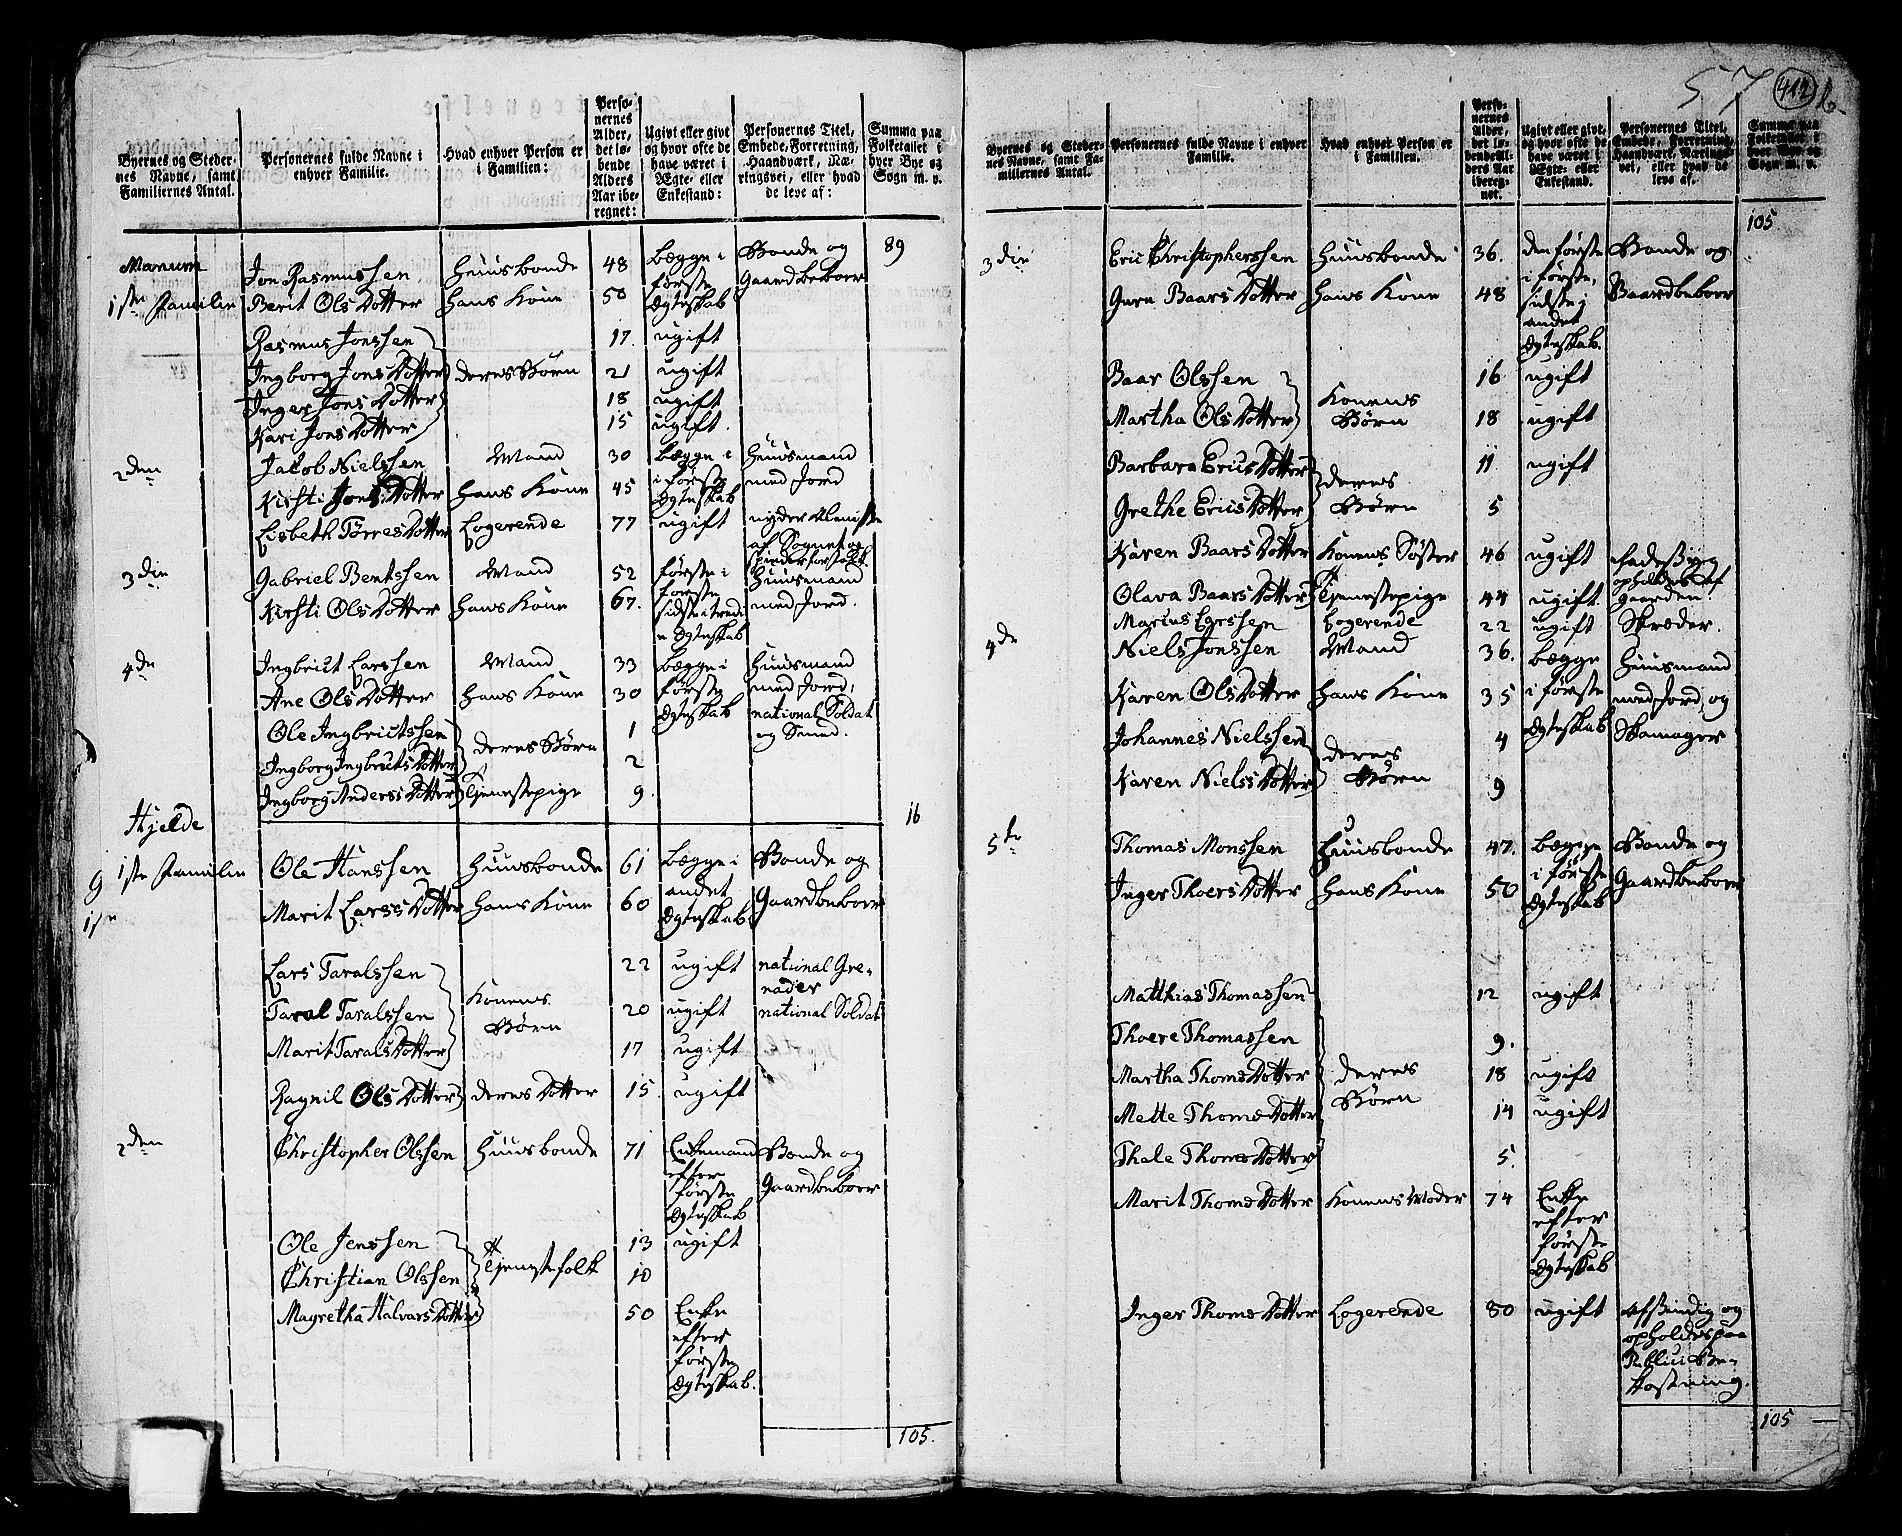 57 412 b.
Byernes og Steder-
nes Navne, samt
Familiernes Antal.
Personernes fulde Navne i
enhver Familie.
Hvad enhver Person er
i Familien:
Perso-
nernes
Alder,
det lø-
bende
Alders
Aar ibe-
regnet:
Ugivt eller givt
og hvor ofte de
have været i
Ægte- eller
Enkestand:
Personernes Titel,
Embede, Forretning,
Haandværk, Næ-
ringsvei, eller hvad
de leve af:
Summa paa
Folketallet i
hver Bye og
Sogn m. v.
89
Manum
1ste Familie
Jon Rasmussen Huusbonde 48 begge i Bonde og
Berit Ols Dotter hans Kone 50 første Gaardbeboer
Ægteskab
Rasmus Jonssen 17. ugift
Ingborg Jons Dotter deres Børn 21 ugift
Inger Jons Dotter 18 ugift
Kari Jons Dotter 15 ugift.
2den Jakob Nielssen Mand 30 begge i Huusmand
Kirsti Jons Dotter hans Kone 45 første med Jord
Ægteskab
Lisbeth Tørres Dotter Logerende 77 ugift nyder Almisse
af Sognet og
3die Gabriel Bentssen Mand 52 første i Huusmand
Kirsti Ols Dotter hans Kone 67. første med Jord.
sidste i tredi-
e Ægteskab
4de Ingbrict Larssen Mand 33 begge i Huusmand
Ane Ols Dotter hans Kone 30 første med Jord,
Ægteskab national Soldat
og Smed.
Ole Ingbrictssen 1
Ingborg Ingbricts Dotter deres Børn 2
Ingborg Anders Dotter Tjenestepige 9.
Hjelde 16
1ste Familie Ole Hanssen Huusbonde 61 begge i Bonde og
9
Marit Larss Dotter hans Kone 60 andet Gaardbeboer
Ægteskab
Lars Taralssen 22 ugift national Gre-
nader
Taral Taralssen Konens Børn 20 ugift national Soldat
Marit Tarals Dotter 17 ugift
Ragnil Ols Dotter deres Dotter 15. ugift
2den Christopher Olssen Huusbonde 71 Enkemand Bonde og
efter Gaardbeboer
første
Ægteskab
Ole Jenssen 13 ugift
Christian Olssen Tjenestefolk 10
Magretha Halvors Dotter 50 Enke
efter
første
Ægteskab.
105.
Byernes og Steder-
nes Navne, samt Fa-
miliernes Antal.
Personernes fulde Navne i enhver
Familie.
Hvad enhver Person er
i Familien.
Perso-
nernes
Alder,
det lø-
bende Al-
ders Aar
ibereg-
net.
Ugivt eller givt,
og hvor ofte de
have været i
Ægte- eller
Enkestand.
Personernes Titel,
Embede, Forretning,
Haandværk, Nærings-
vei, eller hvad de
leve af.
Summa paa
Folketallet i
hver Bye og
Sogn m. v.
105.
3die Eric Christopherssen Huusbonde 36. den første Bonde og
i første,
Guru Baars Dotter hans Kone 48 sidste i Gaardbeboer
andet
Ægteskab.
Baar Olssen 16 ugift
Konens
Martha Ols Dotter Børn 18 ugift
Barbara Erics Dotter 11 ugift
deres
Grethe Erics Dotter Børn 5
Karen Baars Dotter Konens Søster 46 ugift
opholdes af
Olava Baars Dotter Tjenestepige 44 ugift. gaarden.
Marius Larssen Logerende 22 ugift Skræder.
4de Niels Jonssen Mand 36. begge Huusmand
Karen Ols Dotter hans Kone 35 i første med Jord, og
Ægteskab Skomager
Johannes Nielssen 4
deres
Børn
Karen Nielss Dotter 9
5te Thomas Monssen Huusbonde 47. begge Bonde og
i første
Inger Thoers Dotter hans Kone 50 Ægteskab Gaardbeboer
Matthias Thomassen 12 ugift
Thoere Thomassen 9.
Martha Thoms Dotter deres 18 ugift
Mette Thoms Dotter Børn 14 ugift
Thale Thoms Dotter 5.
Marit Thoms Dotter Konens Moder 74 Enke
efter
første
Ægteskab
Inger Thoms Dotter Logerende 80 ugift Afsindig og
opholdes paa
Publici Be-
kostning.
105